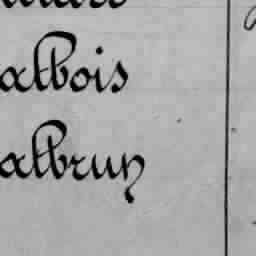 albois
albrun